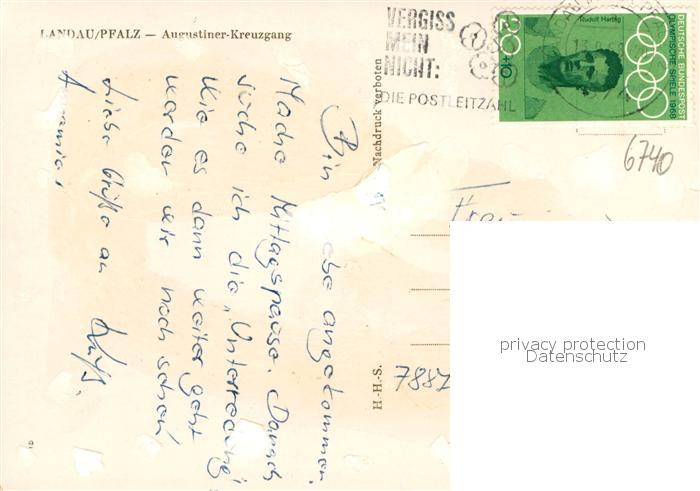 LANDAU/PFALZ — Augustiner-Kreuzgang
VERGISS
MEIN
NICHT:
DIE POSTLEITZAHL
20+10
Rudolf Harbig
DEUTSCHE BUNDESPOST
OLYMPISCHE SPIELE 1968
6740
Nachdruck verboten
H.-H.-S.
Bin angekommen.
Mache Mittagspause. Danach
suche ich die „Unterredung".
Wie es dann weiter geht
werden wir noch sehen
Liebe Grüße an
Frau
788
privacy protection
Datenschutz